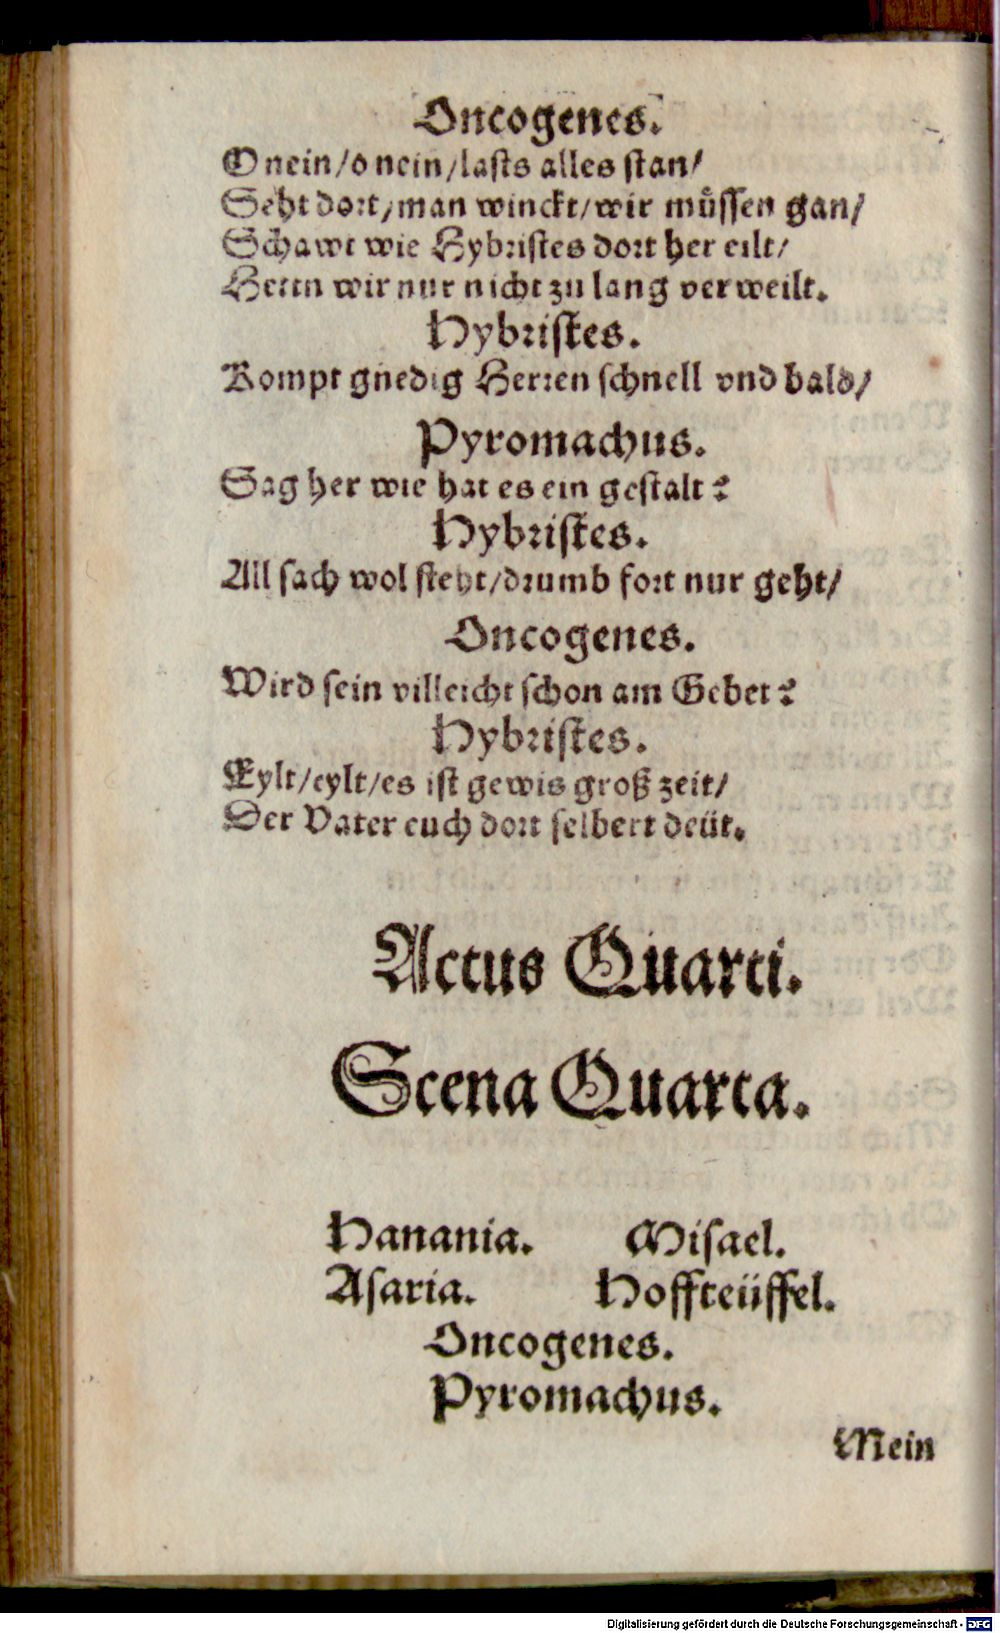 Oncogenes.
O nein/o nein/lasts alles stan/
Seht dort/man winckt/wir müssen gan/
Schawt wie Hybristes dort her eilt/
Hettn wir nur nicht zu lang verweilt.
Hybristes.
Kompt gnedig Herren schnell vnd bald/
Pyromachus.
Sag her wie hat es ein gestalt?
Hybristes.
All sach wol steht/drumb fort nur geht/
Oncogenes.
Wird sein villeicht schon am Gebet?
Hybristes.
Eylt/eylt/es ist gewis groß zeit/
Der Vater euch dort selbert deüt.
Actus Quarti.
Scena Quarta.
Hanania. Misael.
Asaria. Hoffteüffel.
Oncogenes.
Pyromachus.
Mein
Digitalisierung gefördert durch die Deutsche Forschungsgemeinschaft - DFG